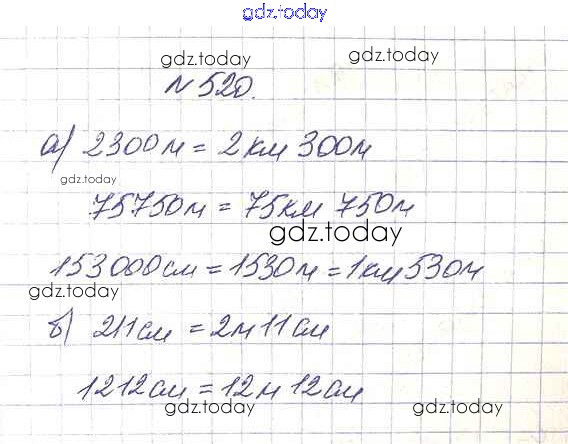 gdz.today
gdz.today
gdz.today
№ 520.
а) 2300м = 2км 300м
gdz.today
75750м = 75км 750м
gdz.today
153000см = 1530м = 1км 530м
gdz.today
б) 211см = 2м 11см
1212см = 12м 12см
gdz.today
gdz.today